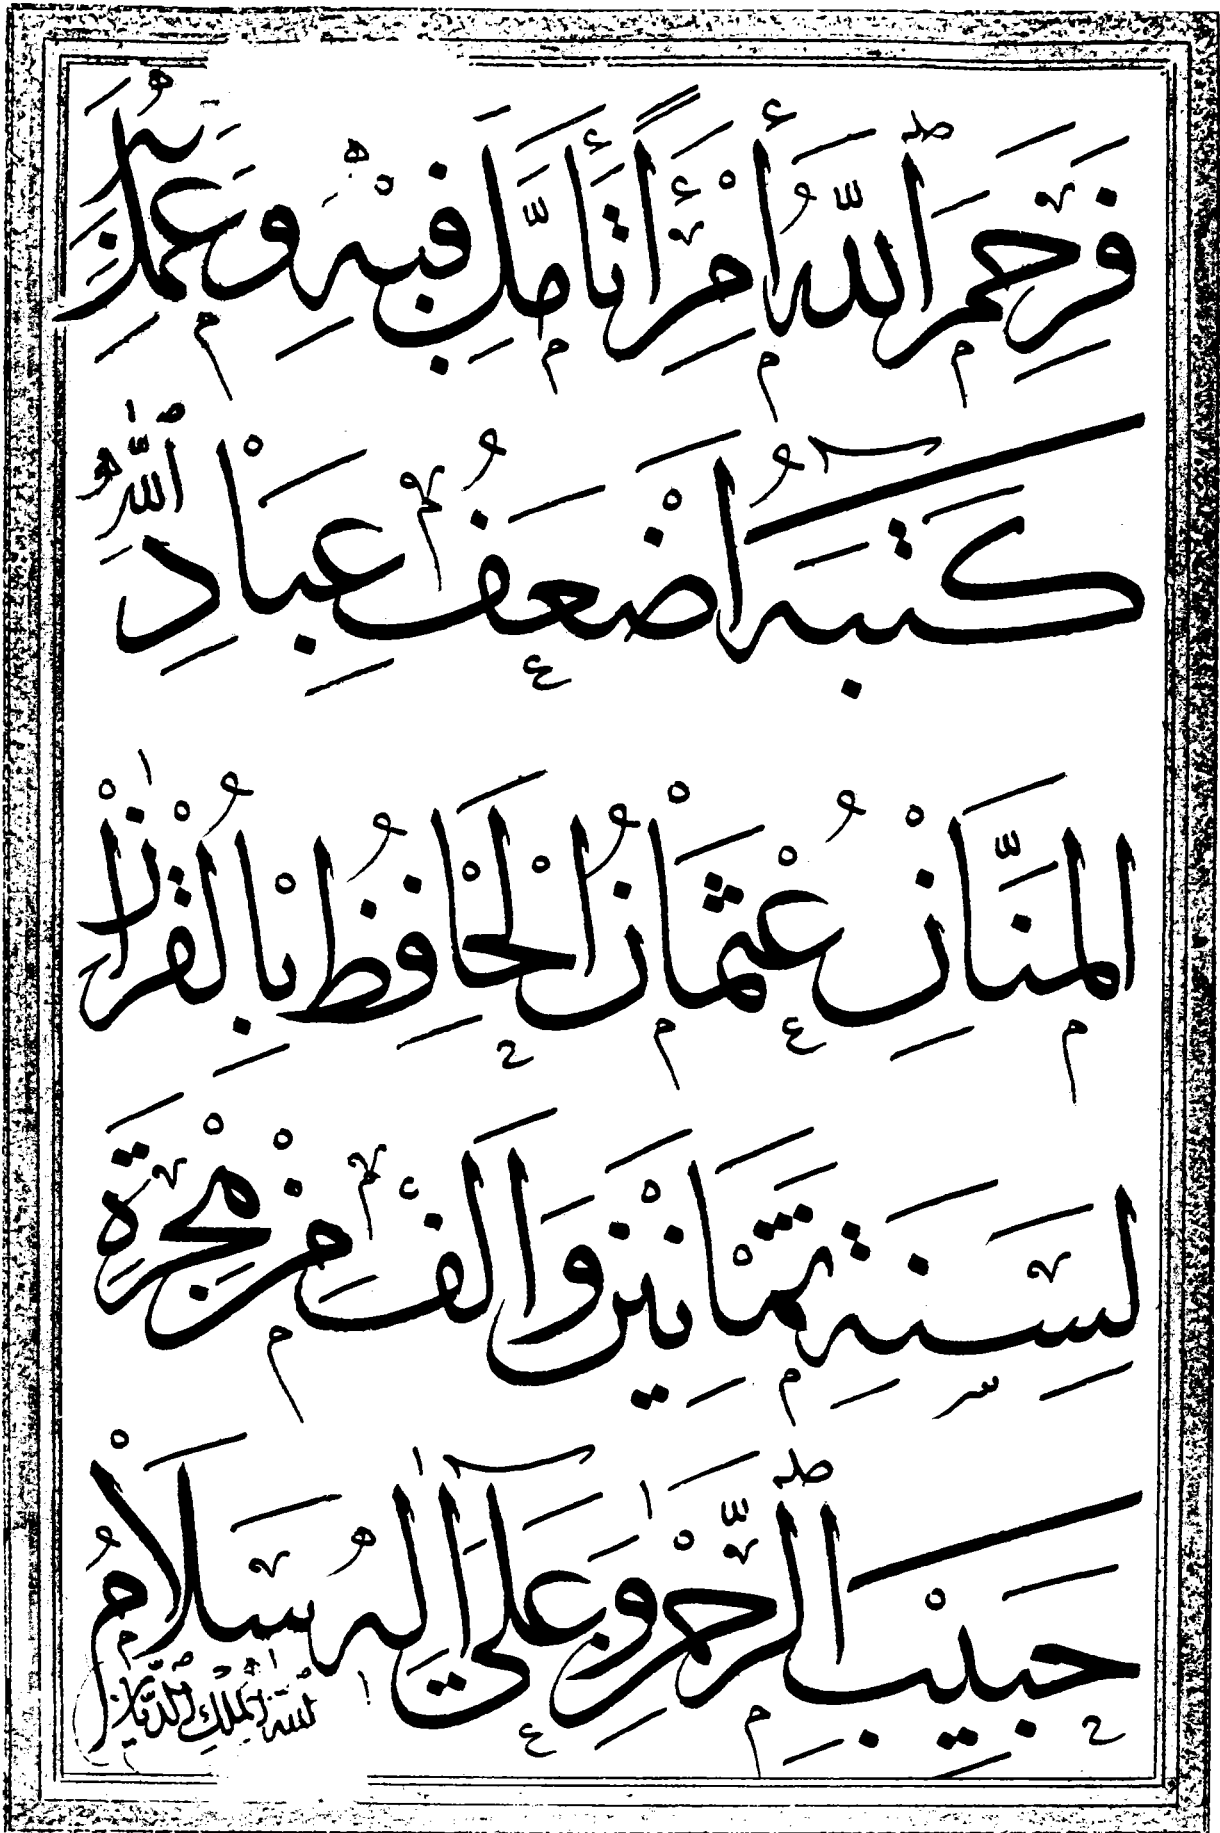 فَرَحِمَ اللّٰهُ أَمْرَأً تَأَمَّلَ فِيْهِ وَعَمِلَ بِهِ
كَتَبَهُ اَضْعَفُ عِبَادِ اللّٰهِ
الْمَنَّانِ عُثْمَانُ الْحَافِظُ بِالْقُرْاٰنْ
لِسَنَةِ ثَمَانِيْنَ وَاَلْفٍ مِنْ هِجْرَةِ
حَبِيْبِ الرَّحْمٰنِ وَعَلٰى اٰلِهِ سَلَامٌ